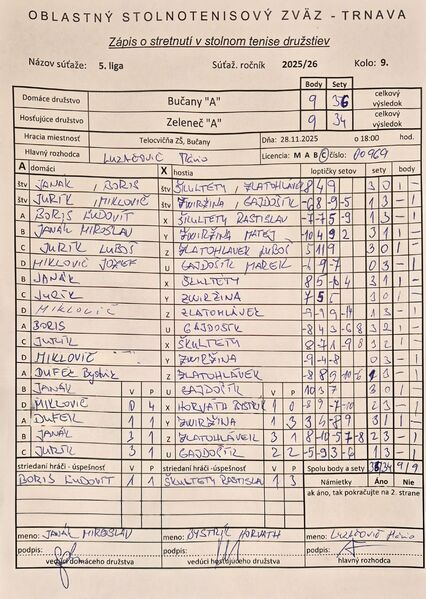 OBLASTNÝ STOLNOTENISOVÝ ZVÄZ - TRNAVA
Zápis o stretnutí v stolnom tenise družstiev
Názov súťaže: 5. liga Súťaž. ročník 2025/26 Kolo: 9.
Body Sety
Domáce družstvo Bučany "A" 9 36 celkový výsledok
Hosťujúce družstvo Zeleneč "A" 9 34 celkový výsledok
Hracia miestnosť Telocvičňa ZŠ, Bučany Dňa: 28.11.2025 o 18:00 hod.
Hlavný rozhodca Licencia: M A B C číslo: 00969
A domáci X hostia loptičky setov sety body
štv JANÁK, BORIS štv ŠKULTÉTY, ZLATOHLÁVEK 8 4 9 3 0 1 -
štv JURÍK, MIKLOVIČ štv ZVIRŽINA, GAJDOŠÍK -6 8 -9 -5 1 3 - 1
A BORIS ĽUDOVÍT X ŠKULTÉTY RASTISLAV -7 -7 5 -9 1 3 - 1
B JANÁK MIROSLAV Y ZVIRŽINA MATEJ -10 4 9 2 3 1 1 -
C JURÍK ĽUBOŠ Z ZLATOHLÁVEK ĽUBOŠ 5 11 9 3 0 1 -
D MIKLOVIČ JOZEF U GAJDOŠÍK MAREK 0 3 - 1
B JANÁK X ŠKULTÉTY 3 1 1 -
C JURÍK Y ZVIRŽINA 3 0 1 -
D MIKLOVIČ Z ZLATOHLÁVEK 1 3 - 1
A BORIS U GAJDOŠÍK -8 4 3 -6 8 3 2 1 -
C JURÍK X ŠKULTÉTY 3 2 1 -
D MIKLOVIČ Y ZVIRŽINA -9 -4 -8 0 3 - 1
A DUFEK Z ZLATOHLÁVEK
B JANÁK V P U GAJDOŠÍK V P 10 3 7 3 0 1 -
D MIKLOVIČ 0 4 X HORVÁTH 1 0 2 3 - 1
A DUFEK 1 1 Y ZVIRŽINA 1 3 3 1 1 -
B JANÁK 3 1 Z ZLATOHLÁVEK 3 1 8 -10 5 7 -8 2 3 - 1
C JURÍK 3 1 U GAJDOŠÍK 2 2 -5 -9 3 -6 1 3 - 1
striedaní hráči - úspešnosť V P striedaní hráči - úspešnosť V P Spolu body a sety 36 34 9 9
BORIS ĽUDOVÍT 1 1 ŠKULTÉTY RASTISLAV 1 3 Námietky Áno Nie
ak áno, tak pokračujte na 2. strane
meno: JANÁK MIROSLAV meno: BYSTRÍK HORVÁTH meno:
podpis: podpis: podpis:
vedúci domáceho družstva vedúci hosťujúceho družstva hlavný rozhodca